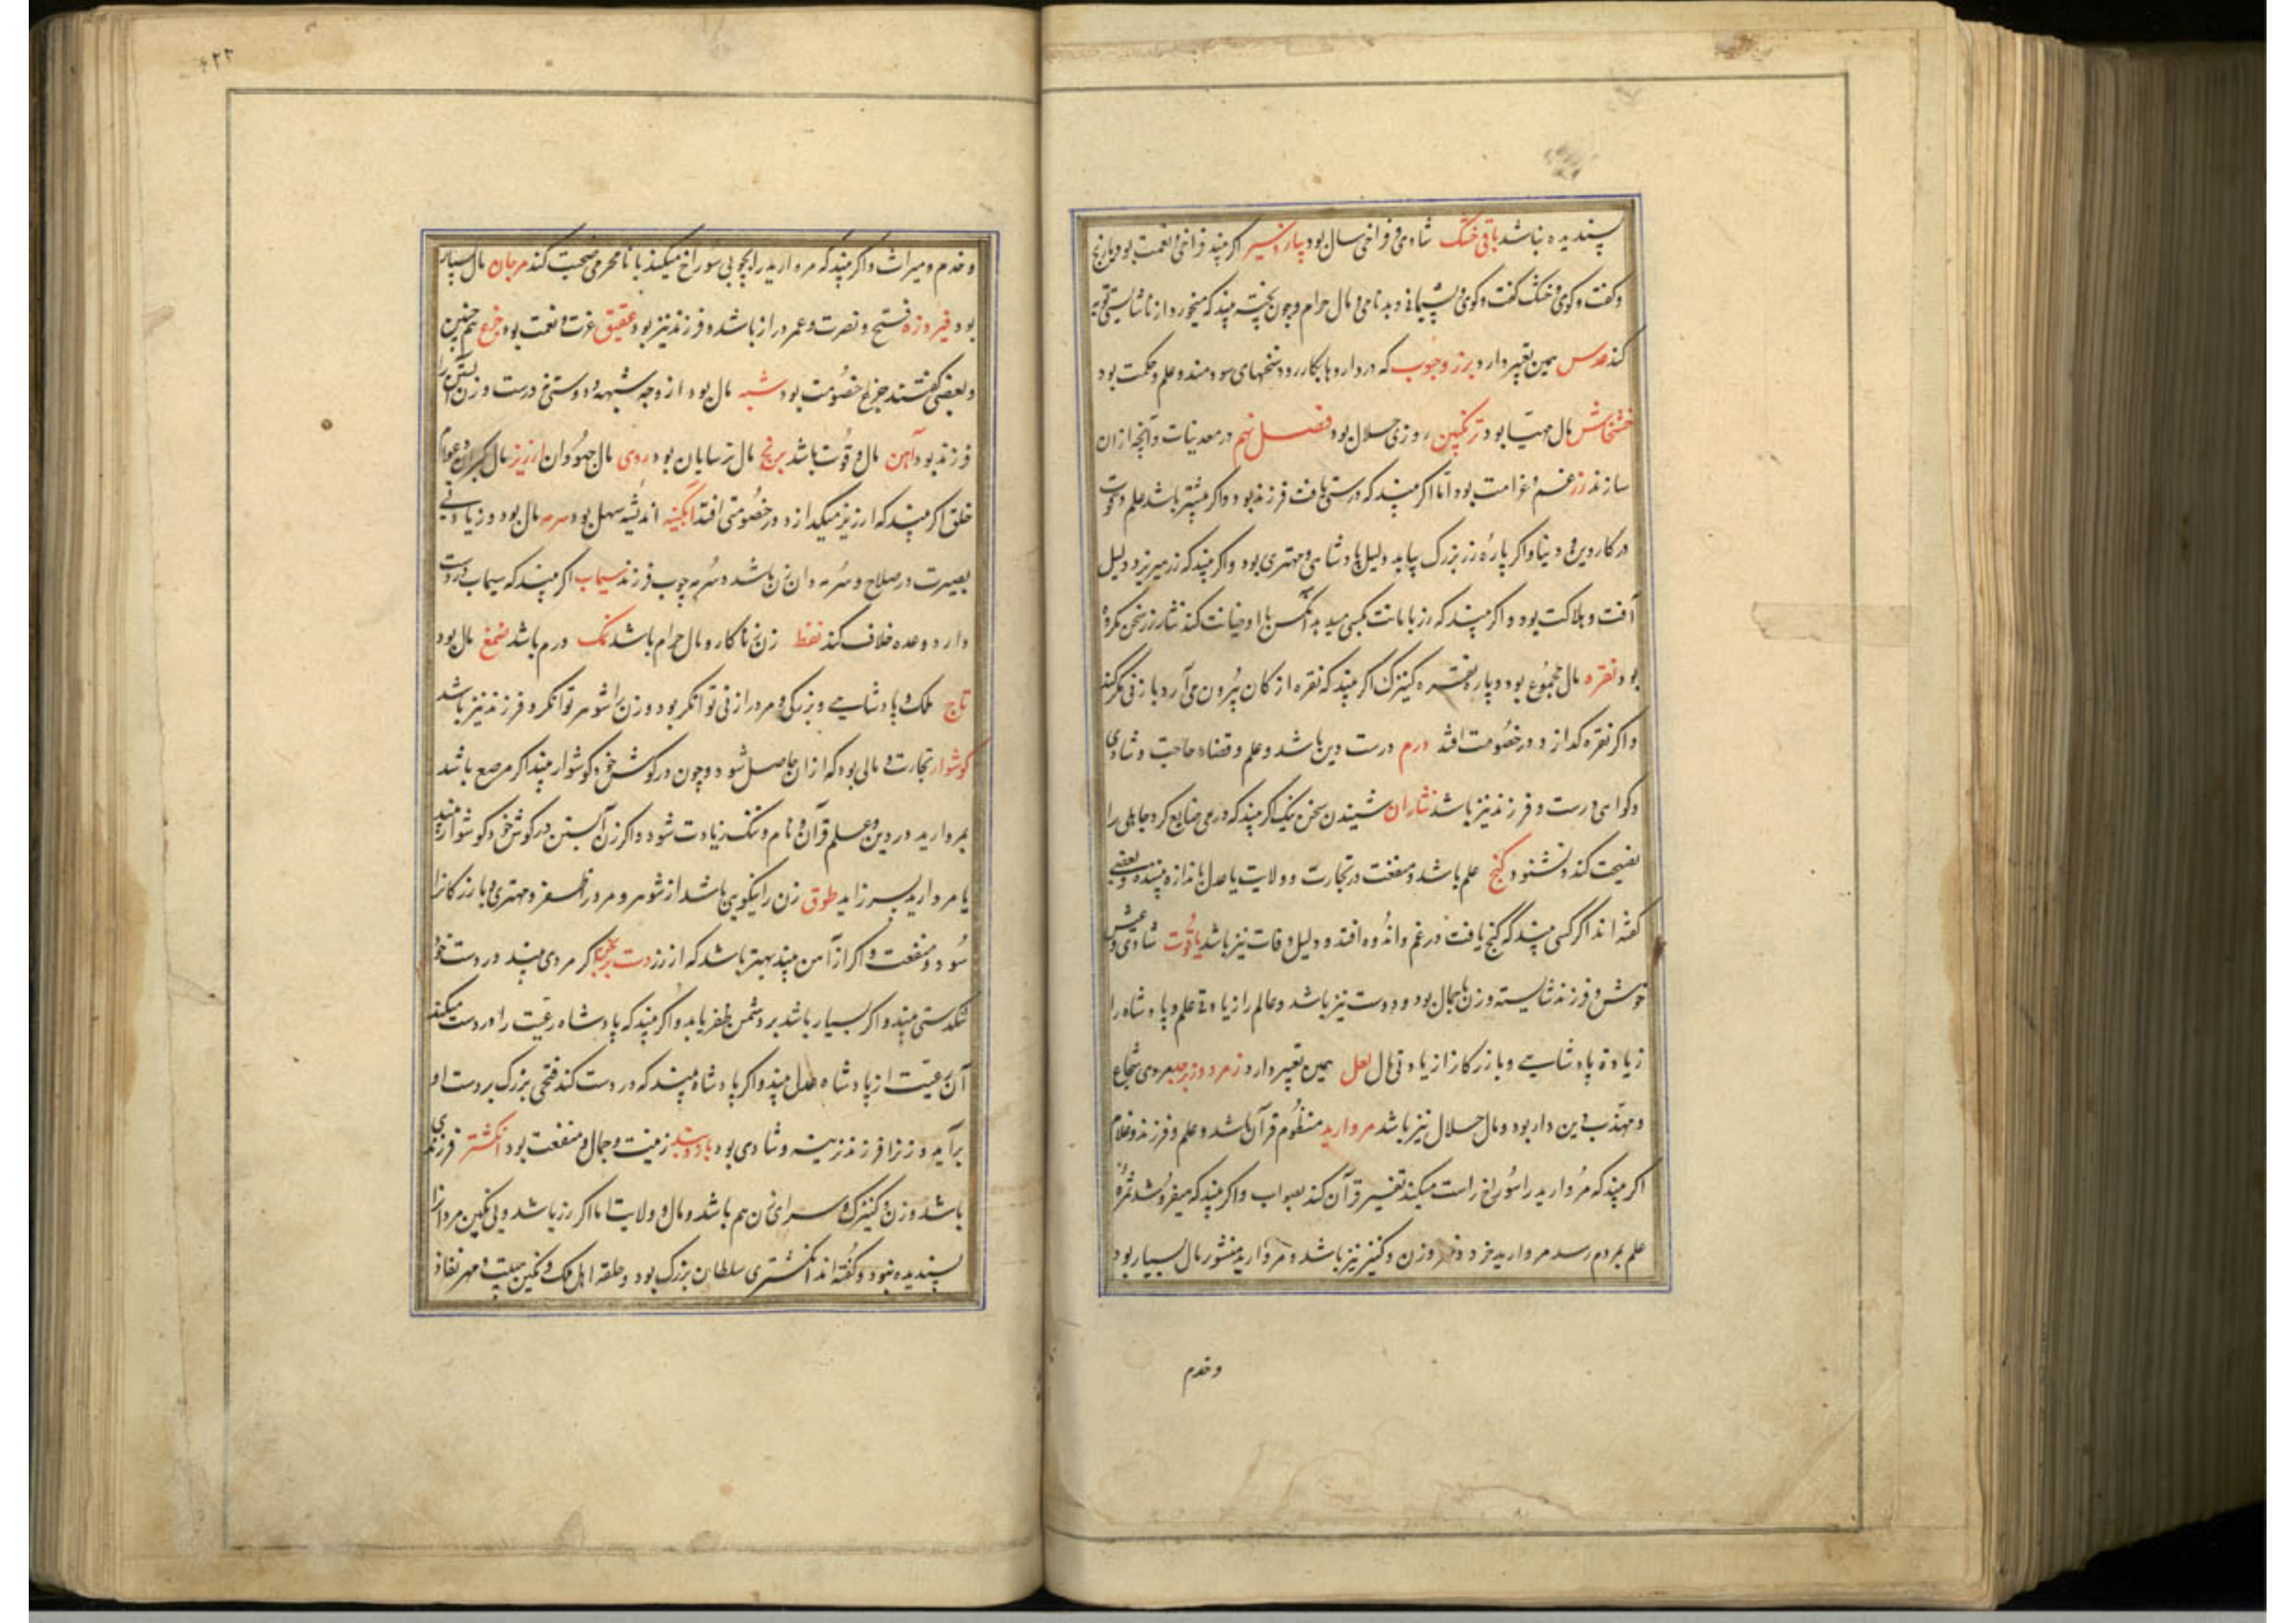 پسندیده نباشد باقلی خشک شادی و فراخی سال بود پیاز و سیر اگر بیند فراخی و نعمت بود با رنج
و کفت و کوی و خشک کفت و کوی و پشیمانی و بدنامی و مال حرام و چون پخته بیند که میخورد از ناشایستی توبه
کند عدس همین تعبیر دارد بزر و حبوب که در داروها بکار رود سخنهای سودمند و علم و حکمت بود
خشخاش مال مهیا بود ترنکبین روزی حلال بود فصل نهم در معدنیات و آنچه از ان
سازند زر غم و غرامت بود اما اکر بیند که درستی یافت فرزند بود و اکر بیشتر باشد علم و قوت
در کار دین و دنیا و اکر پاره زر بزرک بیابد دلیل پادشاهی و مهتری بود و اکر بیند که زر میریزد دلیل
آفت و هلاکت بود و اکر بیند که زر بامانت بکسی میدهد آنکس با او خیانت کند نثار زر سخن مکروه
بود نقره مال مجموع بود و پاره نقره کنیزک اکر بیند که نقره از کان بیرون می آرد با زنی مکر کند
و اکر نقره کدازد در خصومت افتد درم درست دین باشد و علم و قضاء حاجت و شادی
و کواهی درست و فرزند نیز باشد نثاران شنیدن سخن نیک اکر بیند که درمی ضایع کرد جاهلی را
نصیحت کند و نشنود کنج علم باشد و منفعت در تجارت و ولایت با عدل باندازه بیننده و بعضی
کفته اند اکر کسی بیند که کنج یافت در غم و اندوه افتد و دلیل وفات نیز باشد یاقوت شادی و عیش
خوش و فرزند شایسته و زن باجمال بود و دوست نیز باشد و عالم را زیادتی علم و پادشاه را
زیادة پادشاهی و بازرکانرا زیادتی مال لعل همین تعبیر دارد زمرد و زبرجد مردی شجاع
و مهذب دین دار بود و مال حلال نیز باشد مروارید منظوم قرآن باشد و علم و فرزند و غلام
اکر بیند که مروارید را سوراخ راست میکند تفسیر قرآن کند بصواب و اکر بیند که میفروشد ثمره
علم بمردم رسد مروارید خرد وزن و کنیز نیز باشد و مروارید منثور مال بسیار بود
و خدم
۴۲۳
و خدم و میراث و اکر بیند که مروارید را بچوبی سوراخ میکند با نامحرمی صحبت کند مرجان مال بسیار
بود فیروزه فتح و نصرت و عمر دراز باشد و فرزند نیز بود عقیق عزت و نعمت بود جزع هم چنین
و بعضی کفتند جزع خصومت بود شبه مال بود از وجه شبهه و دوستی درست و زن آبستن را
فرزند بود آهن مال و قوت باشد برنج مال ترسایان بود روی مال جهودان ارزیز مال کبران و عوام
خلق اکر بیند که ارزیز میکدازد در خصومتی افتد آبکینه اندیشه سهل بود سرمه مال بود و زیادتی
بصیرت در صلاح و سرمه دان زن باشد و سرمه چوب فرزند سیماب اکر بیند که سیماب در دست
دارد وعده خلاف کند نفط زن نابکار و مال حرام باشد نمک درم باشد صمغ مال بود
تاج ملک و پادشاهی و بزرکی و مرد را زنی توانکر بود و زن را شوهر توانکر و فرزند نیز باشد
کوشوار تجارت و مالی بود که از ان حاصل شود و چون در کوش خود کوشوار بیند اکر مرصع باشد
بمروارید در دین و علم قرآن و نام و ننک زیادت شود و اکر زن آبستن در کوش خود کوشواره بیند
با مروارید پسر زاید طوق زن را نیکویی باشد از شوهر و مرد را ظفر و مهتری و بازرکانرا
سود و منفعت و اکر از آهن بیند بهتر باشد که از زر دست برنجن اکر مردی بیند در دست خود
تنکدستی بیند و اکر بسیار باشد بر دشمن ظفر یابد و اکر بیند که پادشاه رعیت را در دست میکند
آن رعیت از پادشاه عدل بیند و اکر پادشاه بیند که در دست کند فتحی بزرک بر دست او
برآید و زنرا فرزند نرینه و شادی بود بازوبند زینت و جمال و منفعت بود انکشتر فرزندی
باشد و زن و کنیزک و سرای زن هم باشد و مال و ولایت اما اکر زر باشد و بی نکین مردانرا
پسندیده نبود و کفته اند انکشتری سلطان بزرک بود و حلقه اهل ملک و نکین هیبت و مهر نفاذ